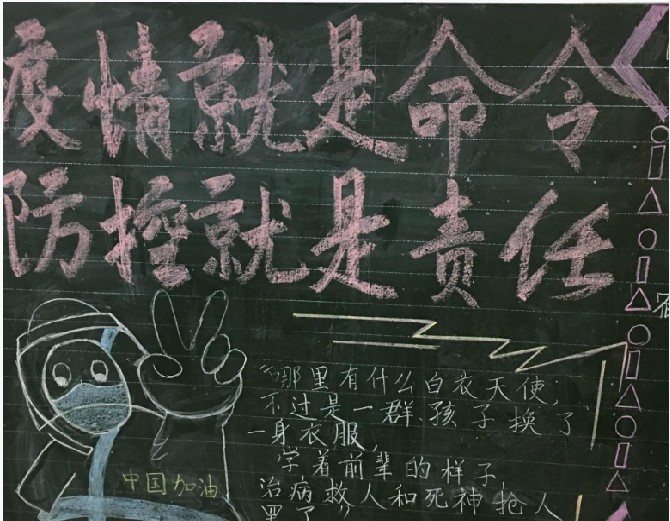 疫情就是命令
防控就是责任
“哪里有什么白衣天使,
不过是一群孩子换了
一身衣服,
学着前辈的样子
治病救人和死神抢人
罢了”
中国加油